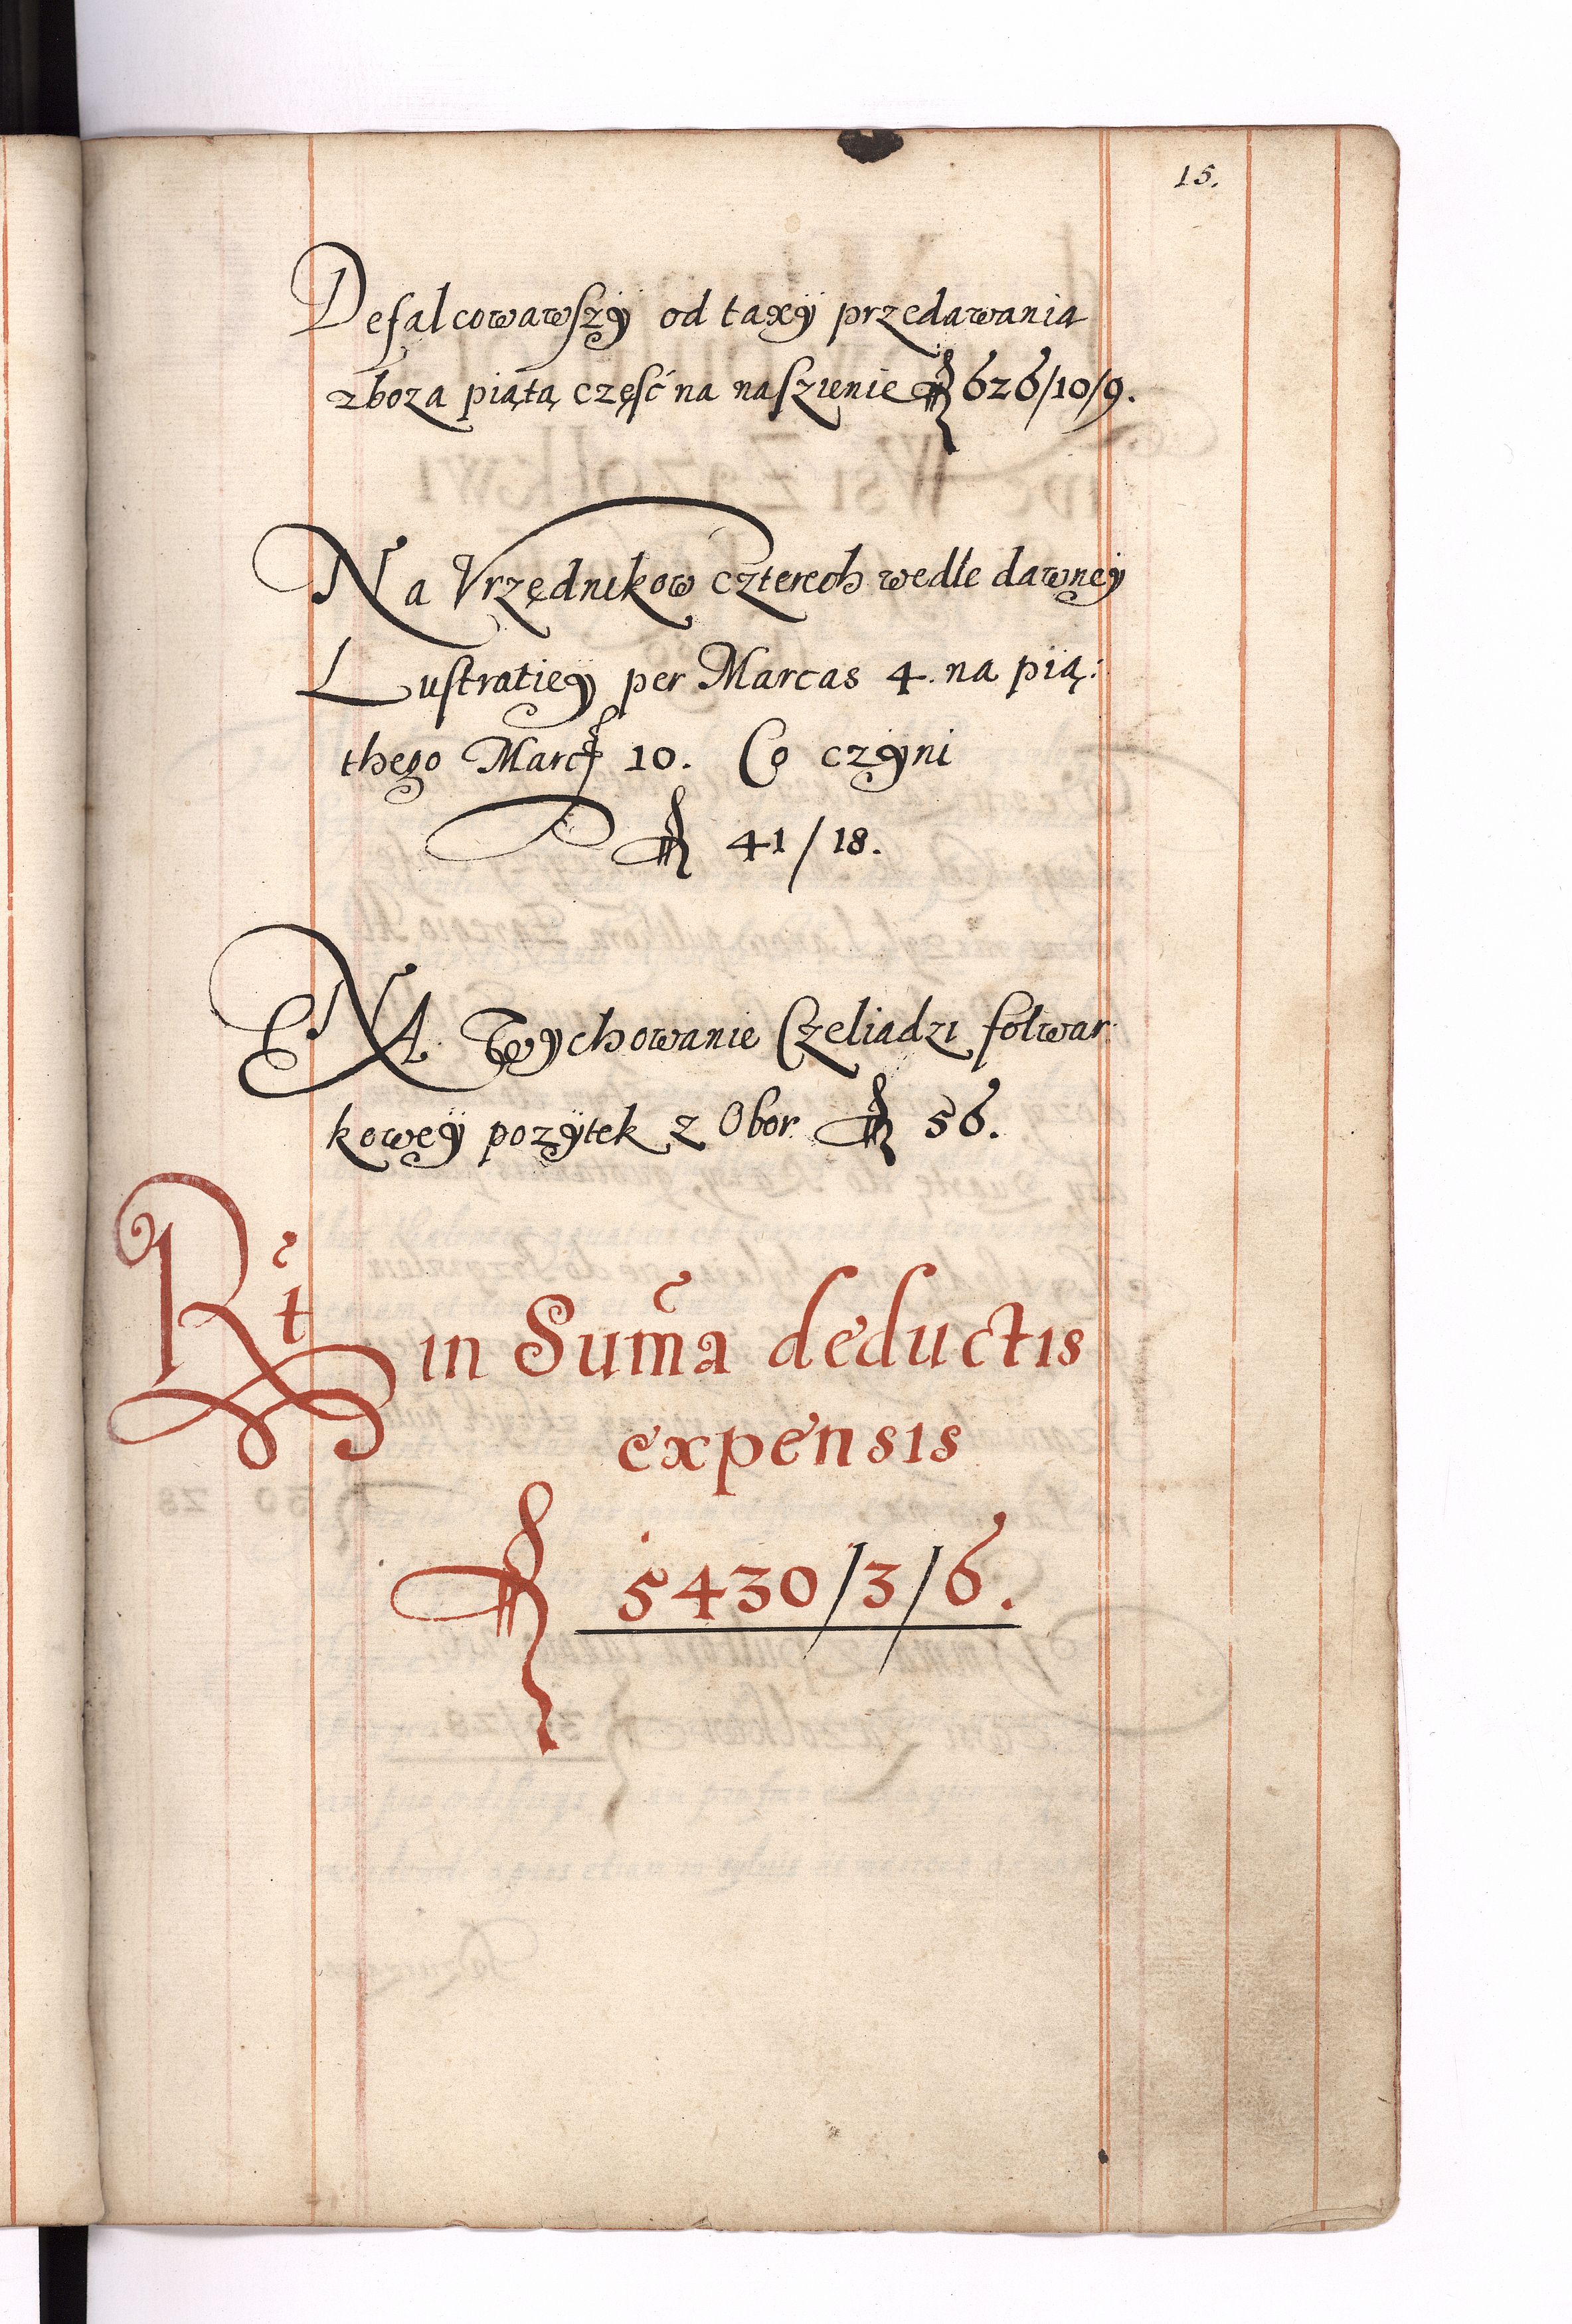 15.
Defalcowawszÿ od taxÿ przedawania
zboza piątą część na naszienie fl 626/10/9.
Na Vrzędnikow czterech wedłe dawneÿ
Lustratieÿ per Marcas 4. na pią:
thego Marc 10. Co czÿni
fl 41/18.
NA Wychowanie Czeliadzi folwar:
koweÿ pozÿtek z Obor fl 56.
Rt in Sum̃a deductis
expensis
fl 5430/3/6.